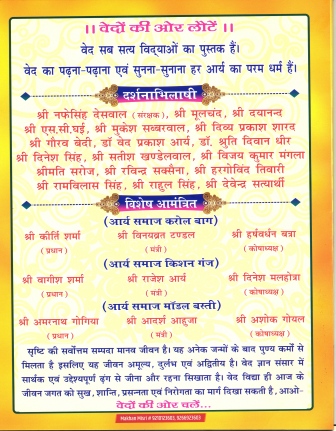 ।। वेदों की ओर लौटें ।।
वेद सब सत्य विद्याओं का पुस्तक है।
वेद का पढ़ना-पढ़ाना एवं सुनना-सुनाना हर आर्य का परम धर्म है।
दर्शनाभिलाषी
श्री नफेसिंह देसवाल (संरक्षक), श्री मूलचंद, श्री दयानन्द
श्री एस.सी.घई, श्री मुकेश सब्बरवाल, श्री दिव्य प्रकाश शारद
श्री गौरव बेदी, डॉ वेद प्रकाश आर्य, डॉ. श्रुति दिवान धीर
श्री दिनेश सिंह, श्री सतीश खण्डेलवाल, श्री विजय कुमार मंगला
श्रीमति सरोज, श्री रविन्द्र सक्सैना, श्री हरगोविंद तिवारी
श्री रामविलास सिंह, श्री राहुल सिंह, श्री देवेन्द्र सत्यार्थी
विशेष आमंत्रित
(आर्य समाज करोल बाग)
श्री कीर्ति शर्मा श्री विनयब्रत टण्डल श्री हर्षवर्धन बत्रा
(प्रधान) (मंत्री) (कोषाध्यक्ष)
(आर्य समाज किशन गंज)
श्री वागीश शर्मा श्री राजेश आर्य श्री दिनेश मलहोत्रा
(प्रधान) (मंत्री) (कोषाध्यक्ष)
(आर्य समाज मॉडल बस्ती)
श्री अमरनाथ गोगिया श्री आदर्श आहुजा श्री अशोक गोयल
(प्रधान) (मंत्री) (कोषाध्यक्ष)
सृष्टि की सर्वोत्तम सम्पदा मानव जीवन है। यह अनेक जन्मों के बाद पुण्य कर्मो से
मिलता है इसलिए यह जीवन अमूल्य, दुर्लभ एवं अद्वितीय है। वेद ज्ञान संसार में
सार्थक एवं उद्देश्यपूर्ण ढ़ंग से जीना और रहना सिखाता है। वेद विद्या ही आज के
जीवन जगत को सुख, शान्ति, प्रसन्नता एवं निरोगता का मार्ग दिखा सकती है, आओ-
वेदों की ओर चलें...